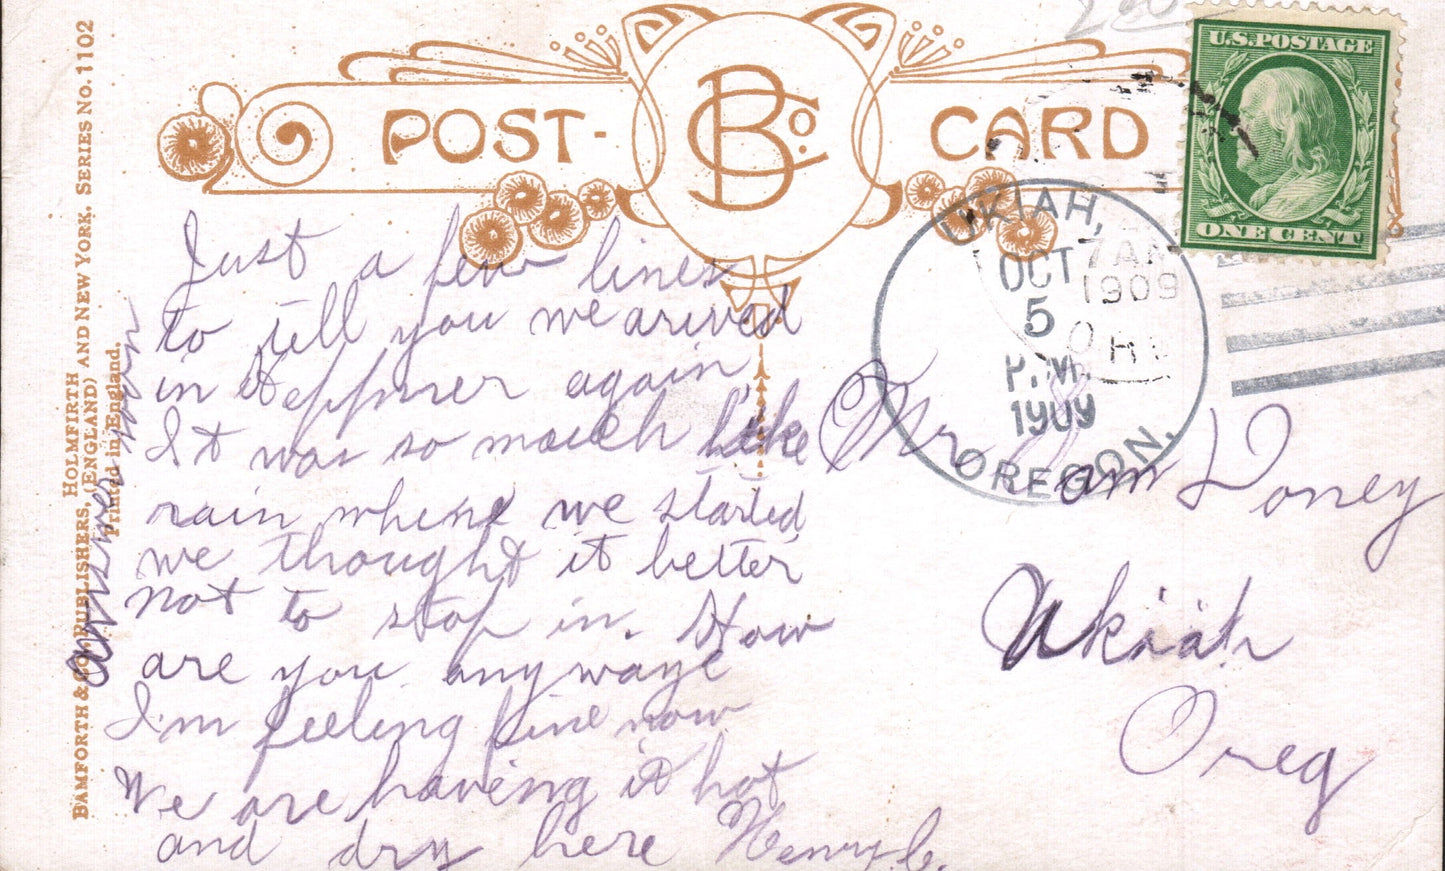 POST-CARD
BCo.
U.S. POSTAGE
ONE CENT
UKIAH,
OCT
5
P.M.
1909
OREGON.
7 AM
1909
Just a few lines
to tell you we arived
in Heppner again
It was so much like
rain when we started
we thought it better
not to stop in. How
are you any waye
I'm feeling fine now
We are having it hot
and dry here Henry C.
Answer soon
Mr Sam Doney
Ukiah
Oreg
BAMFORTH & CO., PUBLISHERS, HOLMFIRTH (ENGLAND) AND NEW YORK. SERIES No. 1102
Printed in England.